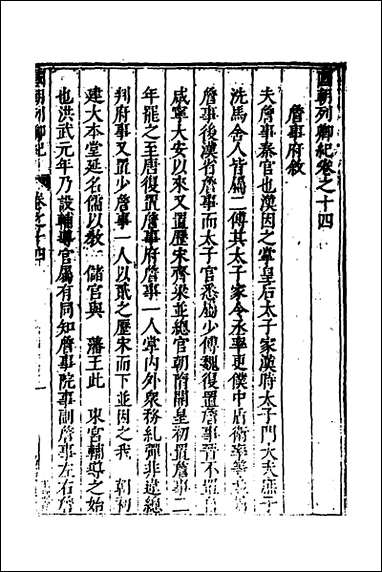 國朝列卿紀卷之十四
詹事府敘
夫詹事秦官也漢因之掌皇后太子家漢時太子門大夫庶子
洗馬舍人皆屬二傅其太子家令丞率更僕中盾衛率等
詹事後漢省詹事而太子官悉屬少傅魏復置詹事晉不置自
咸寧大安以來又置歷宋齊梁並總官朝隋開皇初置詹事二
年罷之至唐復置詹事府詹事一人掌內外衆務糺彈非違總
判府事又置少詹事一人以貳之歷宋而下並因之我 朝初
建大本堂延名儒以教 儲官與 藩王此 東宮輔導之始
也洪武元年乃設輔導官屬有同知詹事院事副詹事左右詹
國朝列卿紀 卷之十四